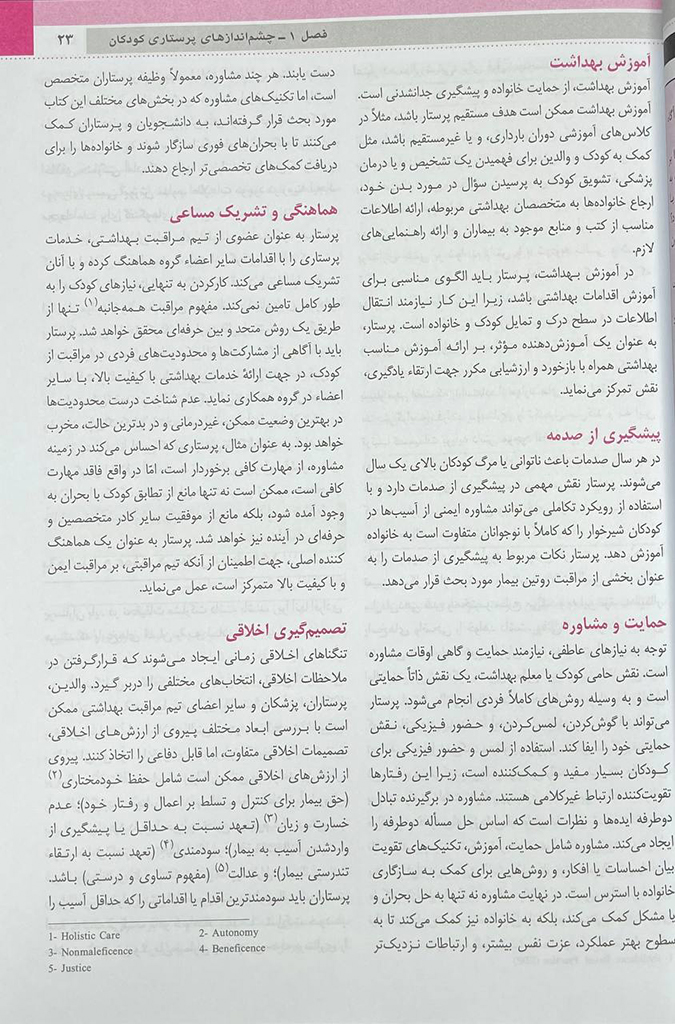 فصل ۱ ـ چشم‌اندازهای پرستاری کودکان ۲۳
آموزش بهداشت
آموزش بهداشت، از حمایت خانواده و پیشگیری جدانشدنی است.
آموزش بهداشت ممکن است هدف مستقیم پرستار باشد، مثلاً در
کلاس‌های آموزشی دوران بارداری، و یا غیرمستقیم باشد، مثل
کمک به کودک و والدین برای فهمیدن یک تشخیص و یا درمان
پزشکی، تشویق کودک به پرسیدن سؤال در مورد بدن خود،
ارجاع خانواده‌ها به متخصصان بهداشتی مربوطه، ارائه اطلاعات
مناسب از کتب و منابع موجود به بیماران و ارائه راهنمایی‌های
لازم.
در آموزش بهداشت، پرستار باید الگوی مناسبی برای
آموزش اقدامات بهداشتی باشد، زیرا این کار نیازمند انتقال
اطلاعات در سطح درک و تمایل کودک و خانواده است. پرستار،
به عنوان یک آموزش‌دهنده مؤثر، بر ارائه آموزش مناسب
بهداشتی همراه با بازخورد و ارزشیابی مکرر جهت ارتقاء یادگیری،
نقش تمرکز می‌نماید.
پیشگیری از صدمه
در هر سال صدمات باعث ناتوانی یا مرگ کودکان بالای یک سال
می‌شوند. پرستار نقش مهمی در پیشگیری از صدمات دارد و با
استفاده از رویکرد تکاملی می‌تواند مشاوره ایمنی از آسیب‌ها در
کودکان شیرخوار را که کاملاً با نوجوانان متفاوت است به خانواده
آموزش دهد. پرستار نکات مربوط به پیشگیری از صدمات را به
عنوان بخشی از مراقبت روتین بیمار مورد بحث قرار می‌دهد.
حمایت و مشاوره
توجه به نیازهای عاطفی، نیازمند حمایت و گاهی اوقات مشاوره
است. نقش حامی کودک یا معلم بهداشت، یک نقش ذاتاً حمایتی
است و به وسیله روش‌های کاملاً فردی انجام می‌شود. پرستار
می‌تواند با گوش‌کردن، لمس‌کردن، و حضور فیزیکی، نقش
حمایتی خود را ایفا کند. استفاده از لمس و حضور فیزیکی برای
کودکان بسیار مفید و کمک‌کننده است، زیرا این رفتارها
تقویت‌کننده ارتباط غیرکلامی هستند. مشاوره در برگیرنده تبادل
دوطرفه ایده‌ها و نظرات است که اساس حل مسأله دوطرفه را
ایجاد می‌کند. مشاوره شامل حمایت، آموزش، تکنیک‌های تقویت
بیان احساسات یا افکار، و روش‌هایی برای کمک به سازگاری
خانواده با استرس است. در نهایت مشاوره نه تنها به حل بحران و
یا مشکل کمک می‌کند، بلکه به خانواده نیز کمک می‌کند تا به
سطوح بهتر عملکرد، عزت نفس بیشتر، و ارتباطات نزدیک‌تر
دست یابند. هر چند مشاوره، معمولاً وظیفه پرستاران متخصص
است، اما تکنیک‌های مشاوره که در بخش‌های مختلف این کتاب
مورد بحث قرار گرفته‌اند، به دانشجویان و پرستاران کمک
می‌کنند تا با بحران‌های فوری سازگار شوند و خانواده‌ها را برای
دریافت کمک‌های تخصصی‌تر ارجاع دهند.
هماهنگی و تشریک مساعی
پرستار به عنوان عضوی از تیم مراقبت بهداشتی، خدمات
پرستاری را با اقدامات سایر اعضاء گروه هماهنگ کرده و با آنان
تشریک مساعی می‌کند. کارکردن به تنهایی، نیازهای کودک را به
طور کامل تامین نمی‌کند. مفهوم مراقبت همه‌جانبه(۱) تنها از
طریق یک روش متحد و بین حرفه‌ای محقق خواهد شد. پرستار
باید با آگاهی از مشارکت‌ها و محدودیت‌های فردی در مراقبت از
کودک، در جهت ارائهٔ خدمات بهداشتی با کیفیت بالا، با سایر
اعضاء در گروه همکاری نماید. عدم شناخت درست محدودیت‌ها
در بهترین وضعیت ممکن، غیردرمانی و در بدترین حالت، مخرب
خواهد بود. به عنوان مثال، پرستاری که احساس می‌کند در زمینه
مشاوره، از مهارت کافی برخوردار است، امّا در واقع فاقد مهارت
کافی است، ممکن است نه تنها مانع از تطابق کودک با بحران به
وجود آمده شود، بلکه مانع از موفقیت سایر کادر متخصصین و
حرفه‌ای در آینده نیز خواهد شد. پرستار به عنوان یک هماهنگ
کننده اصلی، جهت اطمینان از آنکه تیم مراقبتی، بر مراقبت ایمن
و با کیفیت بالا متمرکز است، عمل می‌نماید.
تصمیم‌گیری اخلاقی
تنگناهای اخلاقی زمانی ایجاد می‌شوند که قرارگرفتن در
ملاحظات اخلاقی، انتخاب‌های مختلفی را دربر گیرد. والدین،
پرستاران، پزشکان و سایر اعضای تیم مراقبت بهداشتی ممکن
است با بررسی ابعاد مختلف پیروی از ارزش‌های اخلاقی،
تصمیمات اخلاقی متفاوت، اما قابل دفاعی را اتخاذ کنند. پیروی
از ارزش‌های اخلاقی ممکن است شامل حفظ خودمختاری(۲)
(حق بیمار برای کنترل و تسلط بر اعمال و رفتار خود)؛ عدم
خسارت و زیان(۳) (تعهد نسبت به حداقل یا پیشگیری از
واردشدن آسیب به بیمار)؛ سودمندی(۴) (تعهد نسبت به ارتقاء
تندرستی بیمار)؛ و عدالت(۵) (مفهوم تساوی و درستی) باشد.
پرستاران باید سودمندترین اقدام یا اقداماتی را که حداقل آسیب را
1- Holistic Care 2- Autonomy
3- Nonmaleficence 4- Beneficence
5- Justice